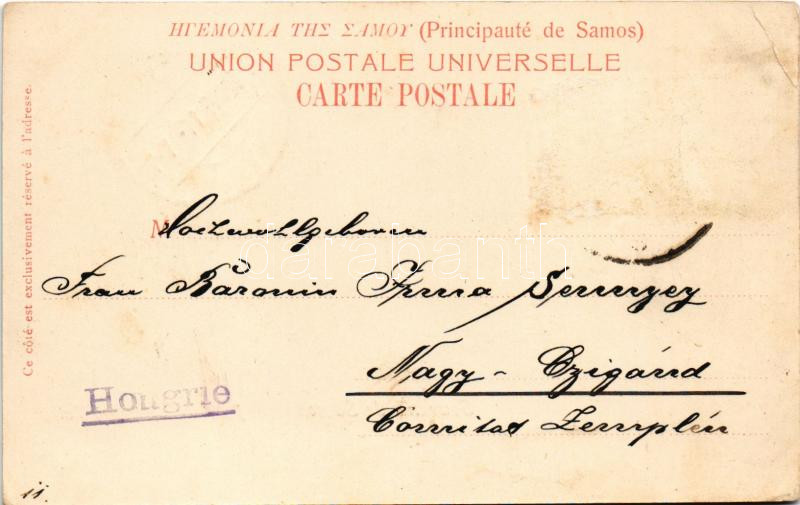 ΗΓΕΜΟΝΙΑ ΤΗΣ ΣΑΜΟΥ (Principauté de Samos)
UNION POSTALE UNIVERSELLE
CARTE POSTALE
Ce côté est exclusivement réservé à l'adresse.
M
Hochwohlgeboren
Frau Baronin Irma Sennyey
Nagy - Czigánd
Comitat Zemplén
Hongrie
11.
darabanth